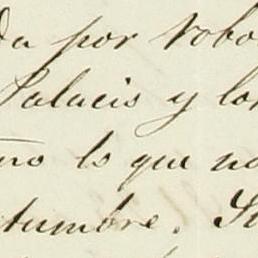 da por robo
Palacio y lo
no lo que no
tumbre. Si